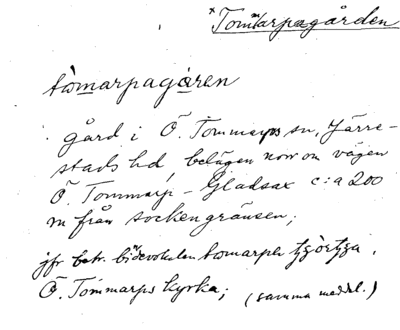 *Tommarpagården
tomarpagåren
gård i Ö. Tommarps sn, Järre-
stads hd, belägen norr om vägen
Ö. Tommarp - Gladsax c:a 200
m från sockengränsen;
jfr betr. bitevokalen tomarpa
Ö. Tommarps kyrka; (samma meddel.)